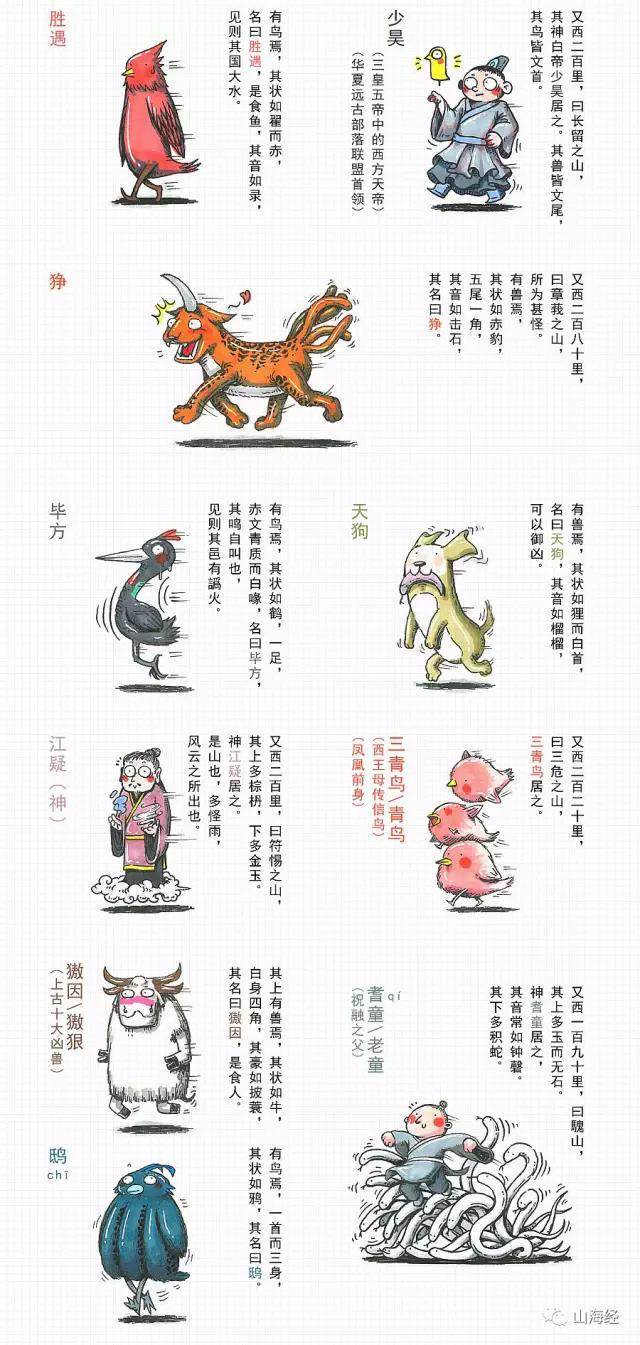 又西二百里，曰长留之山，
其神白帝少昊居之。其兽皆文尾，
其鸟皆文首。
少昊
（三皇五帝中的西方天帝）
（华夏远古部落联盟首领）
有鸟焉，其状如翟而赤，
名曰胜遇，是食鱼，其音如录，
见则其国大水。
胜遇
又西二百八十里，
曰章莪之山，
所为甚怪。
有兽焉，
其状如赤豹，
五尾一角，
其音如击石，
其名曰狰。
狰
有兽焉，其状如狸而白首，
名曰天狗，其音如榴榴，
可以御凶。
天狗
有鸟焉，其状如鹤，一足，
赤文青质而白喙，名曰毕方，
其鸣自叫也，
见则其邑有譌火。
毕方
又西二百二十里，
曰三危之山，
三青鸟居之。
三青鸟/青鸟
（西王母传信鸟）
（凤凰前身）
又西二百里，曰符惕之山，
其上多棕枬，下多金玉。
神江疑居之。
是山也，多怪雨，
风云之所出也。
江疑（神）
其上有兽焉，其状如牛，
白身四角，其豪如披蓑，
其名曰獓因，是食人。
獓因/獓狠
（上古十大凶兽）
又西一百九十里，曰騩山，
其上多玉而无石。
神耆童居之，
其音常如钟磬。
其下多积蛇。
耆童/老童
qí
（祝融之父）
有鸟焉，一首而三身，
其状如鸦，其名曰鸱。
鸱
chī
山海经